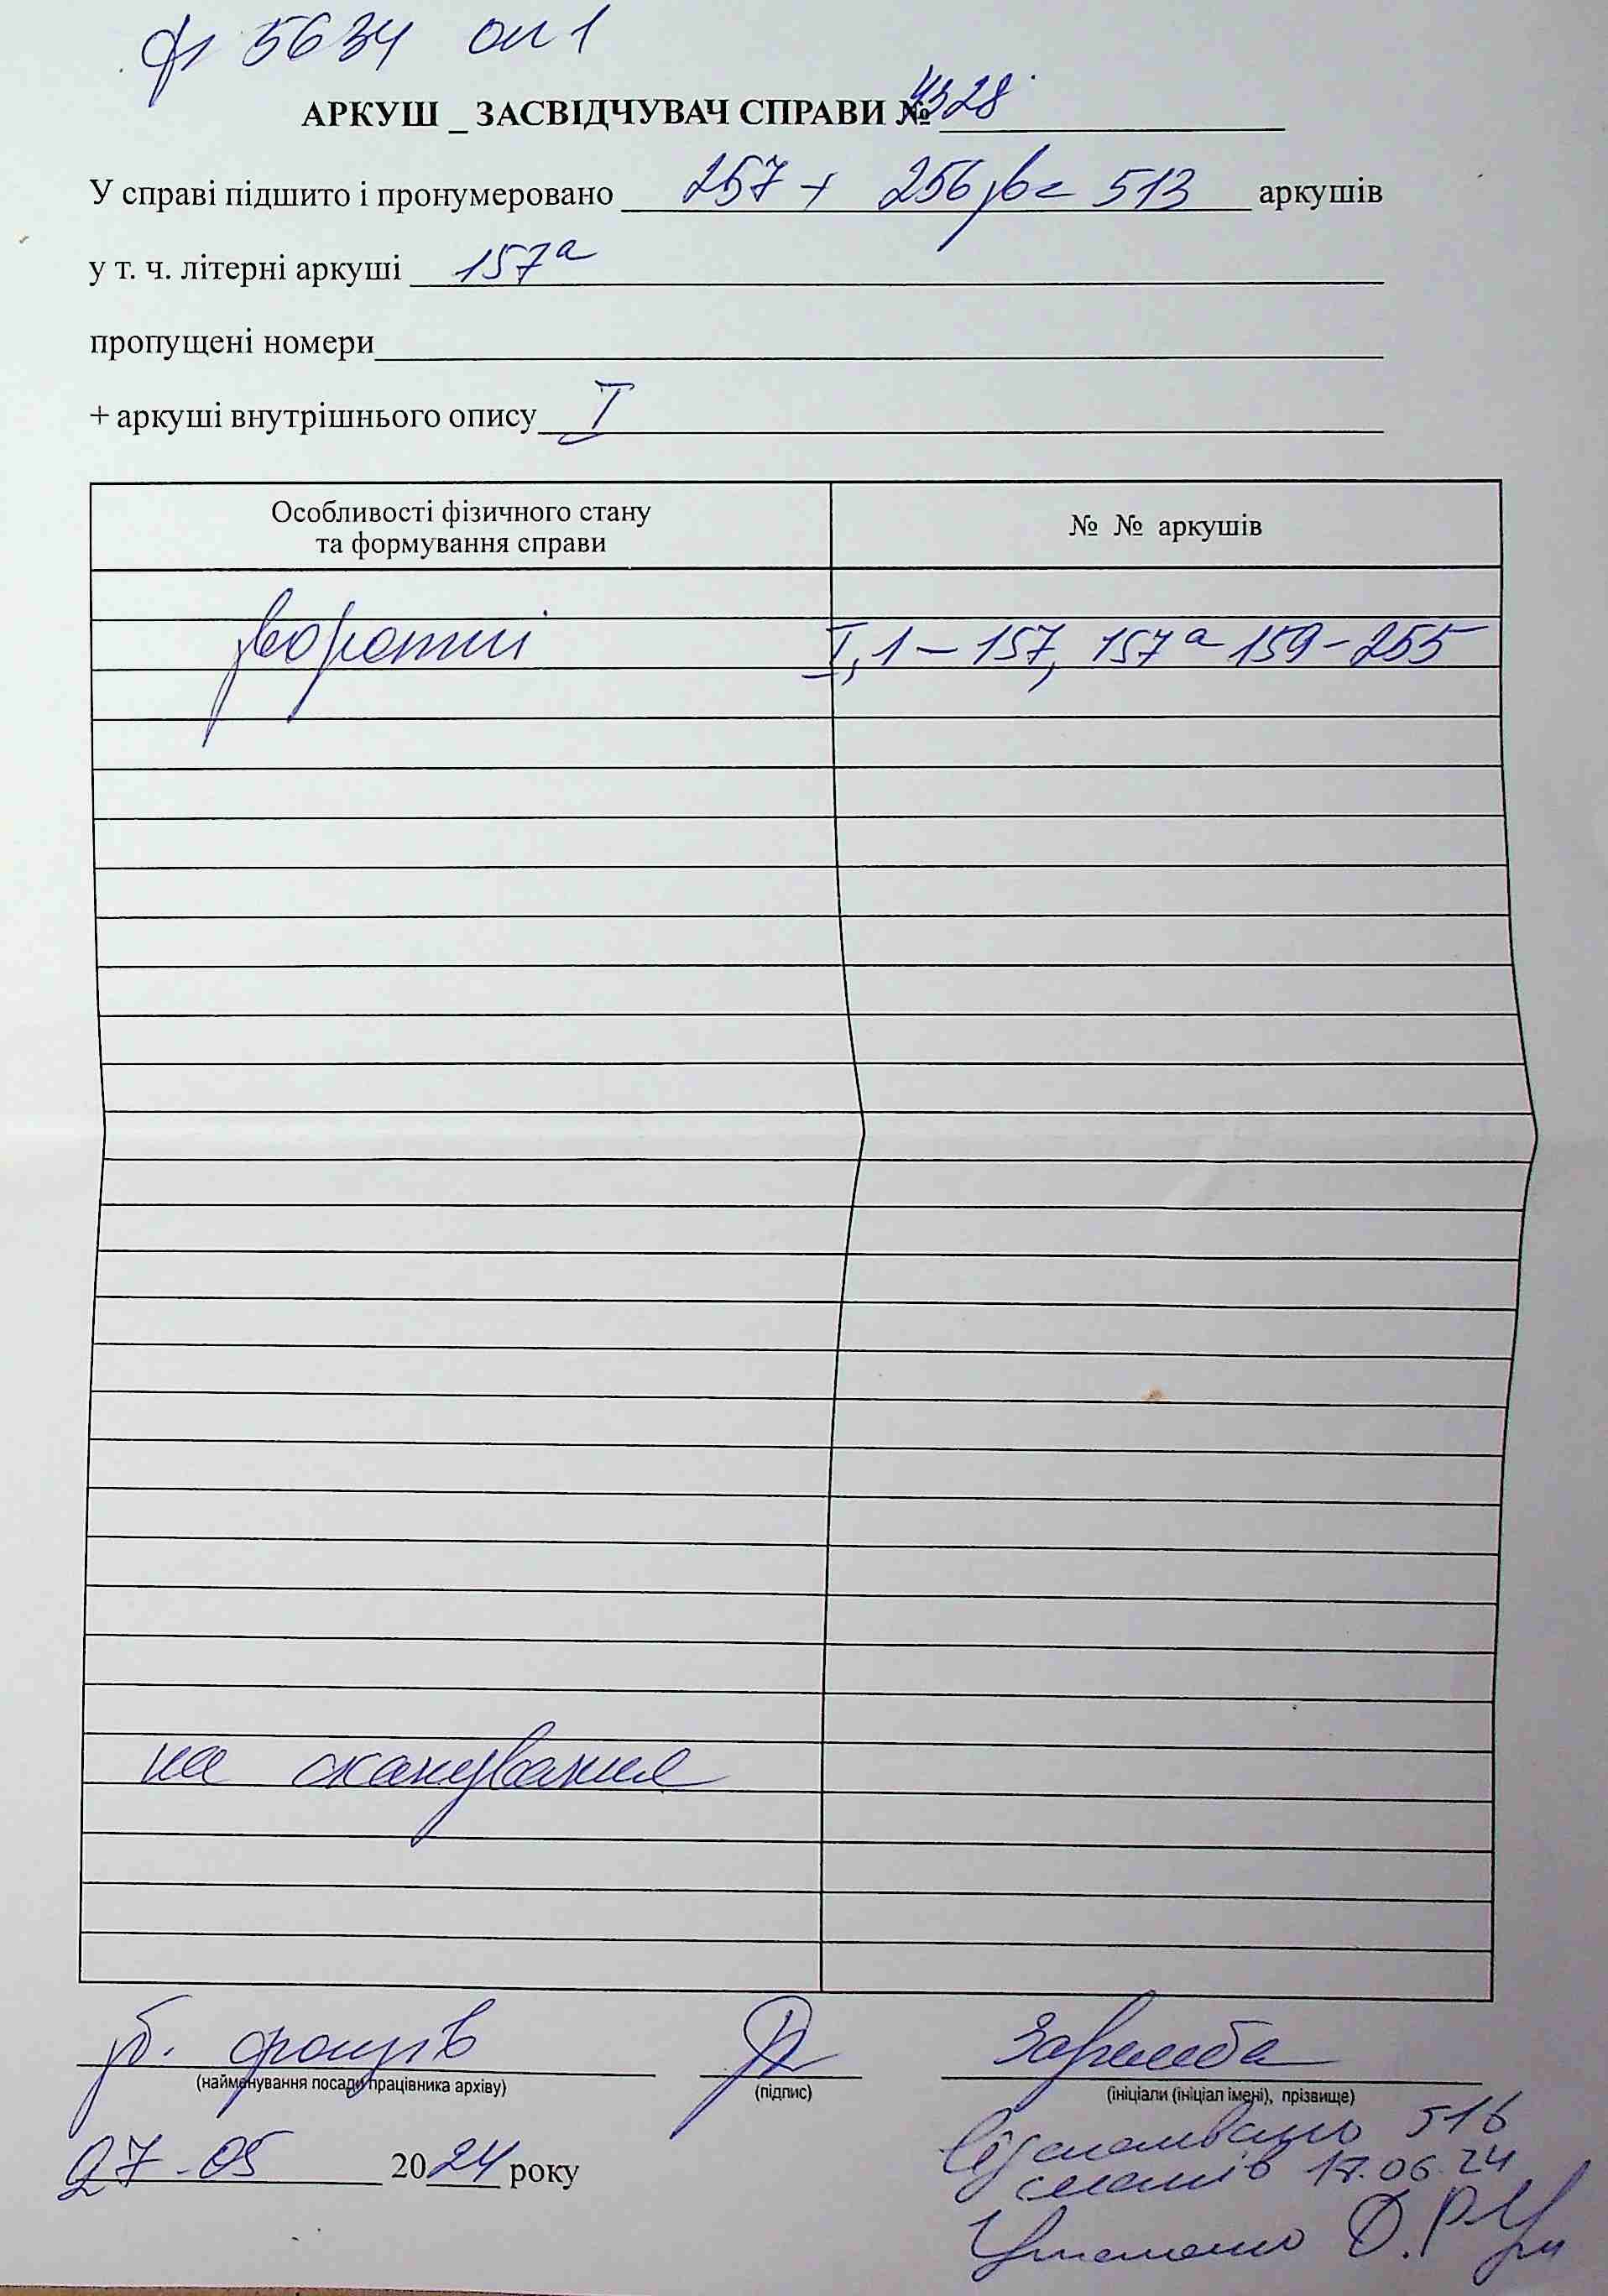 ф 5634 оп 1
АРКУШ _ ЗАСВІДЧУВАЧ СПРАВИ № 4328
У справі підшито і пронумеровано 257 + 256 зв = 513 аркушів
у т. ч. літерні аркуші 157а
пропущені номери
+ аркуші внутрішнього опису I
Особливості фізичного стану
та формування справи
№ № аркушів
звороти I, 1 – 157, 157а 159 – 255
на сканування
зб. фондів Заремба
(найменування посади працівника архіву) (підпис) (ініціали (ініціал імені), прізвище)
Відскановано 516
сканів 17.06.24
27 - 05 2024 року
Д.Р.